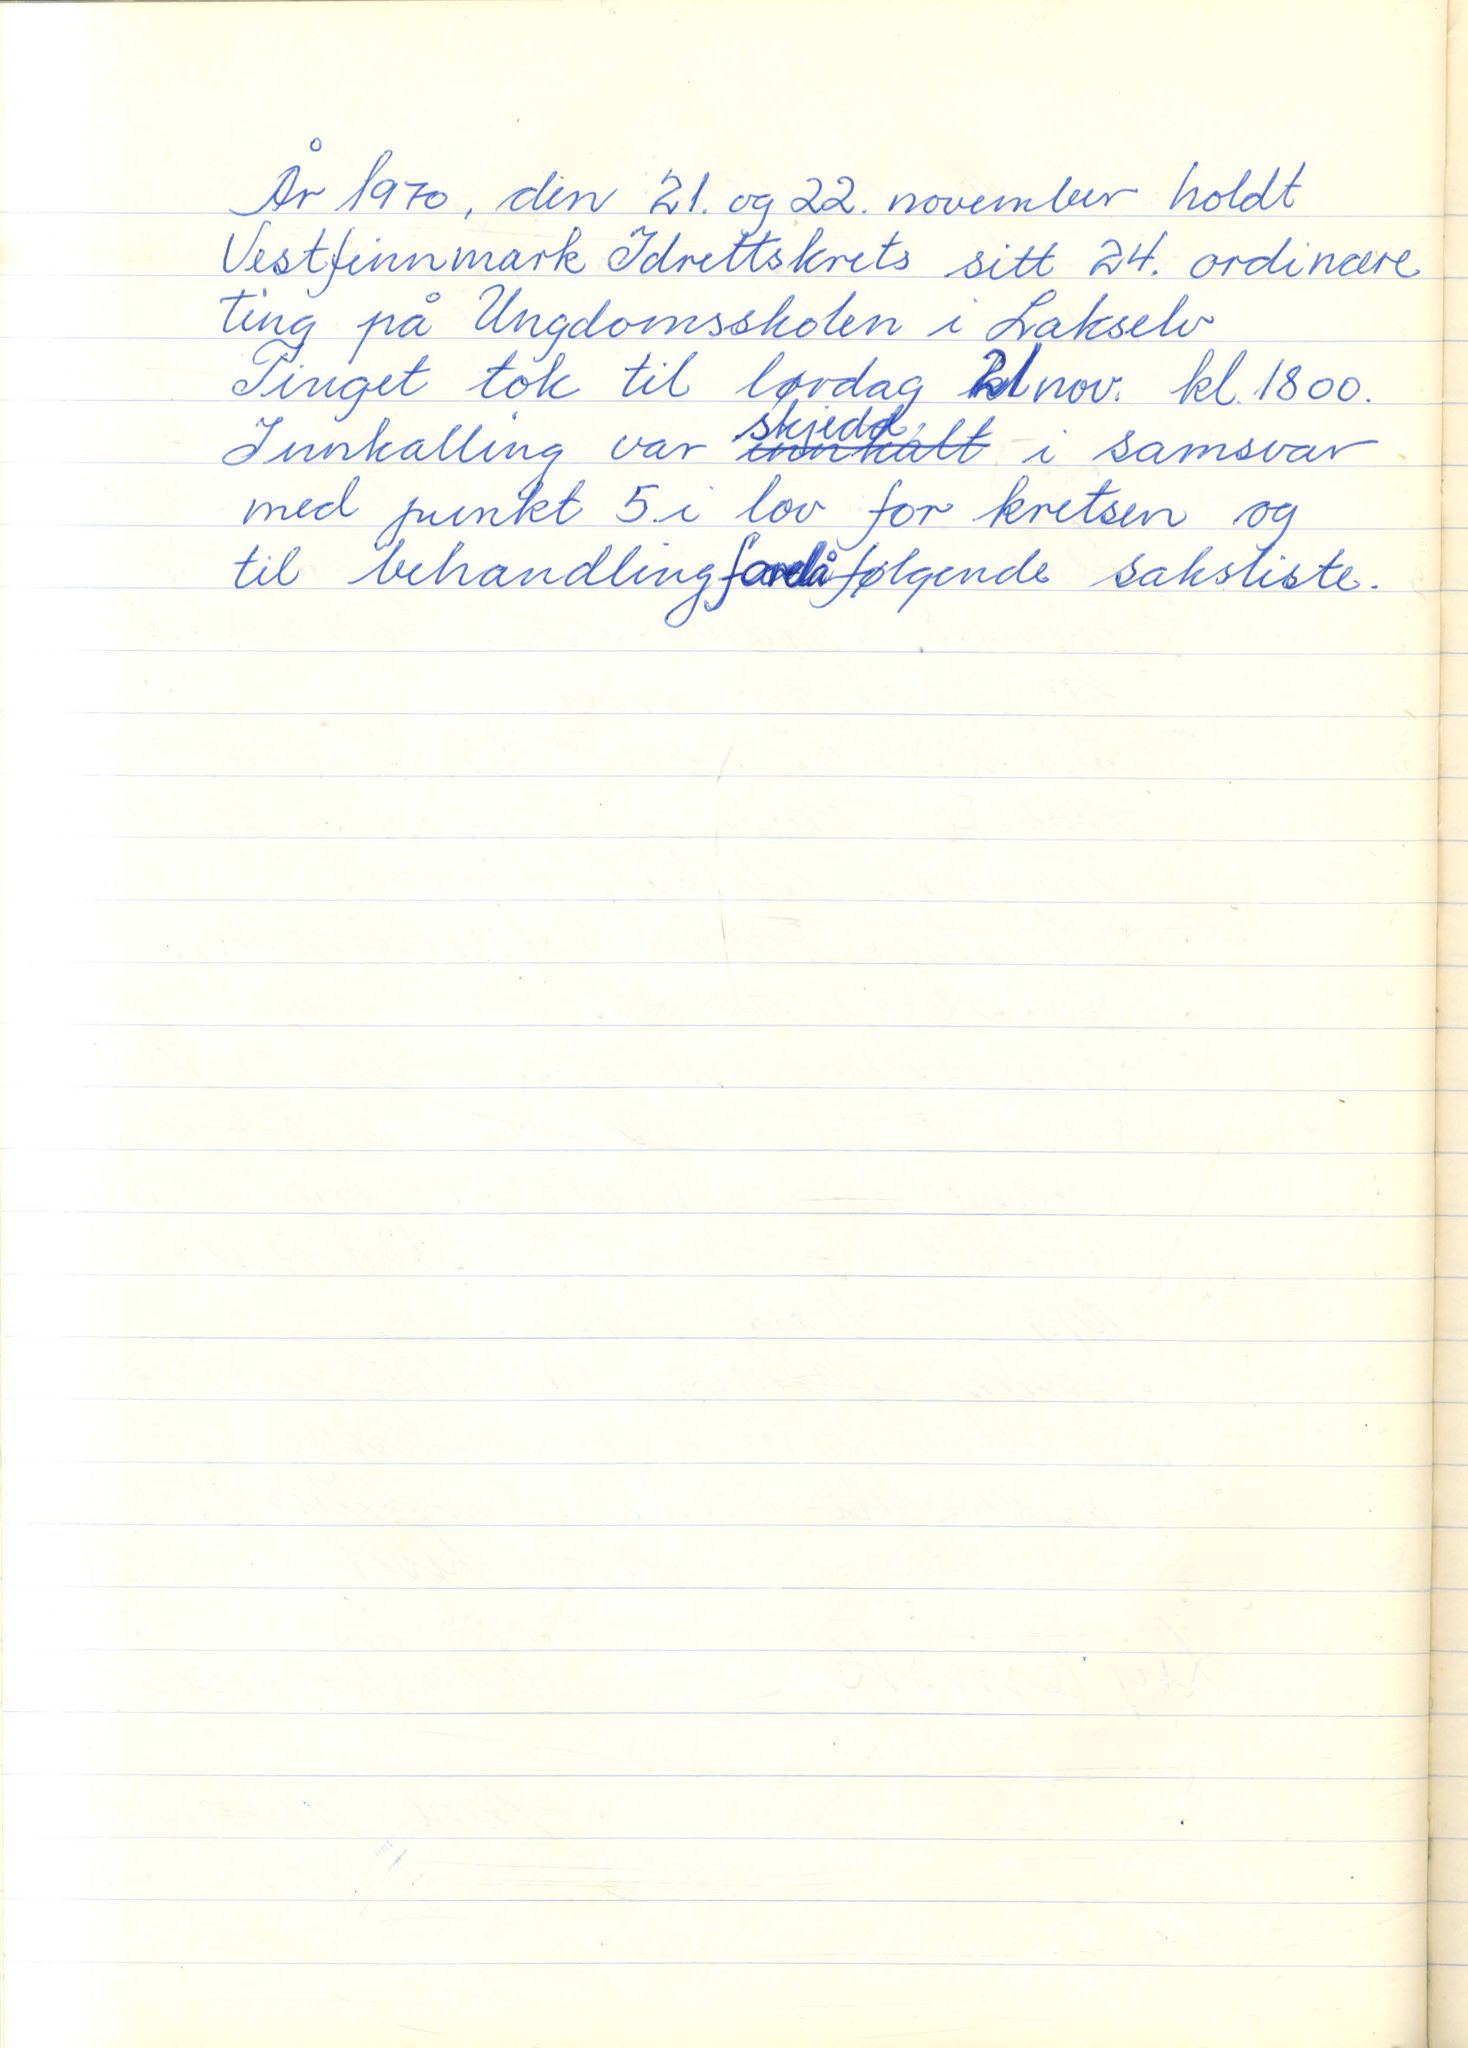 År 1970, den 21. og 22. november holdt
Vestfinnmark Idrettskrets sitt 24. ordinære
ting på Ungdomsskolen i Lakselv
Tinget tok til lørdag 21 nov. kl. 1800.
skjedd
Innkalling var innkalt i samsvar
med punkt 5. i lov for kretsen og
til behandling forelå følgende saksliste.